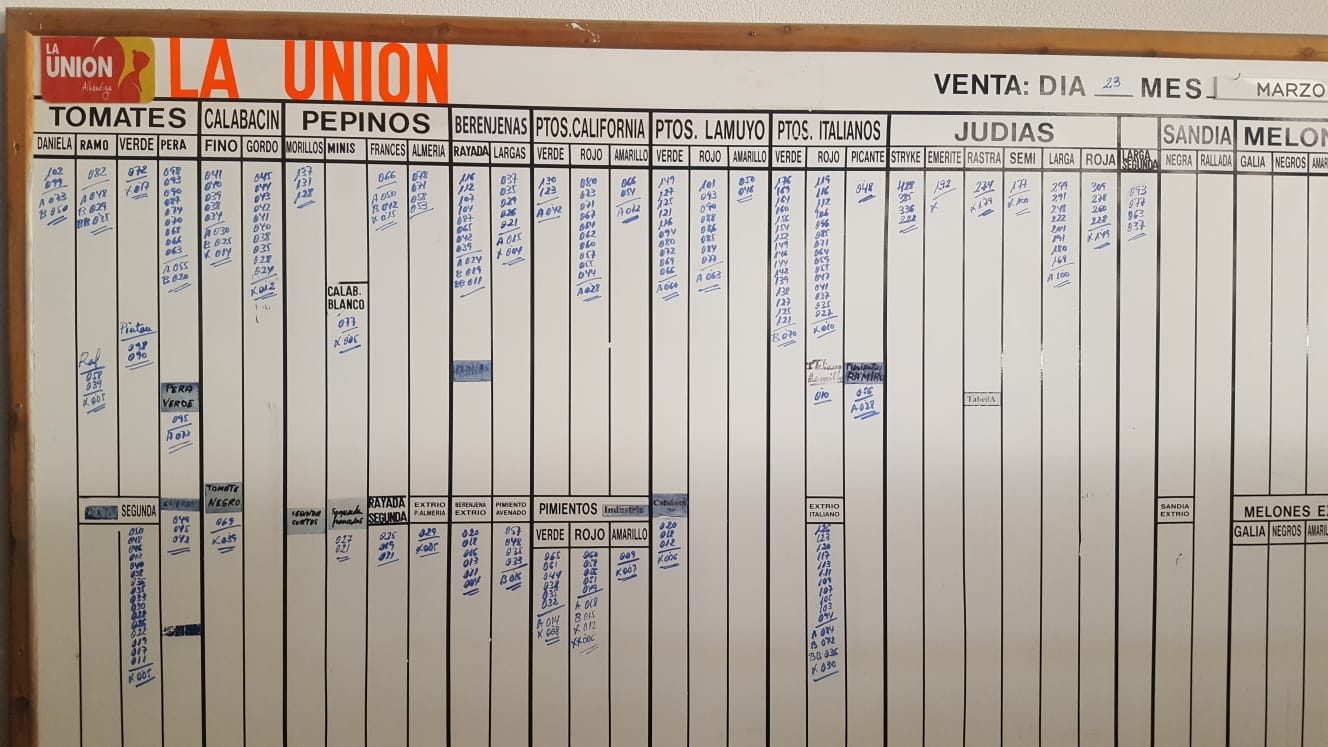 LA
UNION
Alhóndiga
LA UNION
VENTA: DIA 23 MES MARZO
TOMATES
CALABACIN
PEPINOS
BERENJENAS
PTOS.CALIFORNIA
PTOS. LAMUYO
PTOS. ITALIANOS
JUDIAS
LARGA
SEGUNDA
SANDIA
MELON
DANIELA RAMO VERDE PERA
FINO GORDO
MORILLOS MINIS FRANCES ALMERIA
RAYADA LARGAS
VERDE ROJO AMARILLO
VERDE ROJO AMARILLO
VERDE ROJO PICANTE
STRYKE EMERITE RASTRA SEMI LARGA ROJA
NEGRA RALLADA
GALIA NEGROS AMAR
102
099
A 073
B 050
082
A 048
B 029
BB 035
072
X 017
098
093
090
087
074
070
068
066
063
A 055
B 020
041
040
039
038
034
A 030
B 025
X 014
045
044
043
042
041
040
038
035
028
024
X 012
137
131
128
066
A 050
B 042
X 015
078
071
058
053
116
112
107
104
087
065
042
039
A 024
B 019
BB 011
037
035
029
026
021
A 015
X 004
130
123
A 042
080
073
071
067
064
062
060
057
055
044
A 028
066
054
A 012
149
127
125
121
116
094
080
072
069
066
A 060
101
093
090
088
086
085
084
077
A 063
050
048
176
169
164
160
156
154
152
149
146
144
142
139
138
127
125
121
B 070
119
116
112
106
096
085
071
064
059
055
047
041
037
035
027
X 010
048
428
385
336
222
192
X
274
X 179
177
X 100
299
291
248
222
204
191
180
169
A 100
309
278
260
228
X 149
093
077
063
037
CALAB.
BLANCO
077
X 005
Pinton
098
090
Raf
058
039
X 005
PERA
VERDE
095
A 077
Italiano
Ramillo
010
RAMIRO
056
A 038
TabellA
SEGUNDA
TOMATE
NEGRO
069
X 039
SEGUNDA
CORTOS
Segunda
franceses
RAYADA
SEGUNDA
EXTRIO
P.ALMERIA
BERENJENA
EXTRIO
PIMIENTO
AVENADO
PIMIENTOS Industria
VERDE ROJO AMARILLO
EXTRIO
ITALIANO
SANDIA
EXTRIO
MELONES EX
GALIA NEGROS AMARIL
049
045
042
027
021
025
019
021
029
X 005
020
018
016
013
011
004
057
048
035
039
B 016
065
061
044
038
035
032
A 014
X 008
060
059
055
051
049
A 018
B 015
X 012
XX 006
009
X 007
020
018
012
X 006
136
127
120
117
113
111
109
107
105
103
094
A 084
B 072
BB 036
X 030
050
048
046
042
040
038
036
035
033
030
028
026
022
019
017
011
X 005